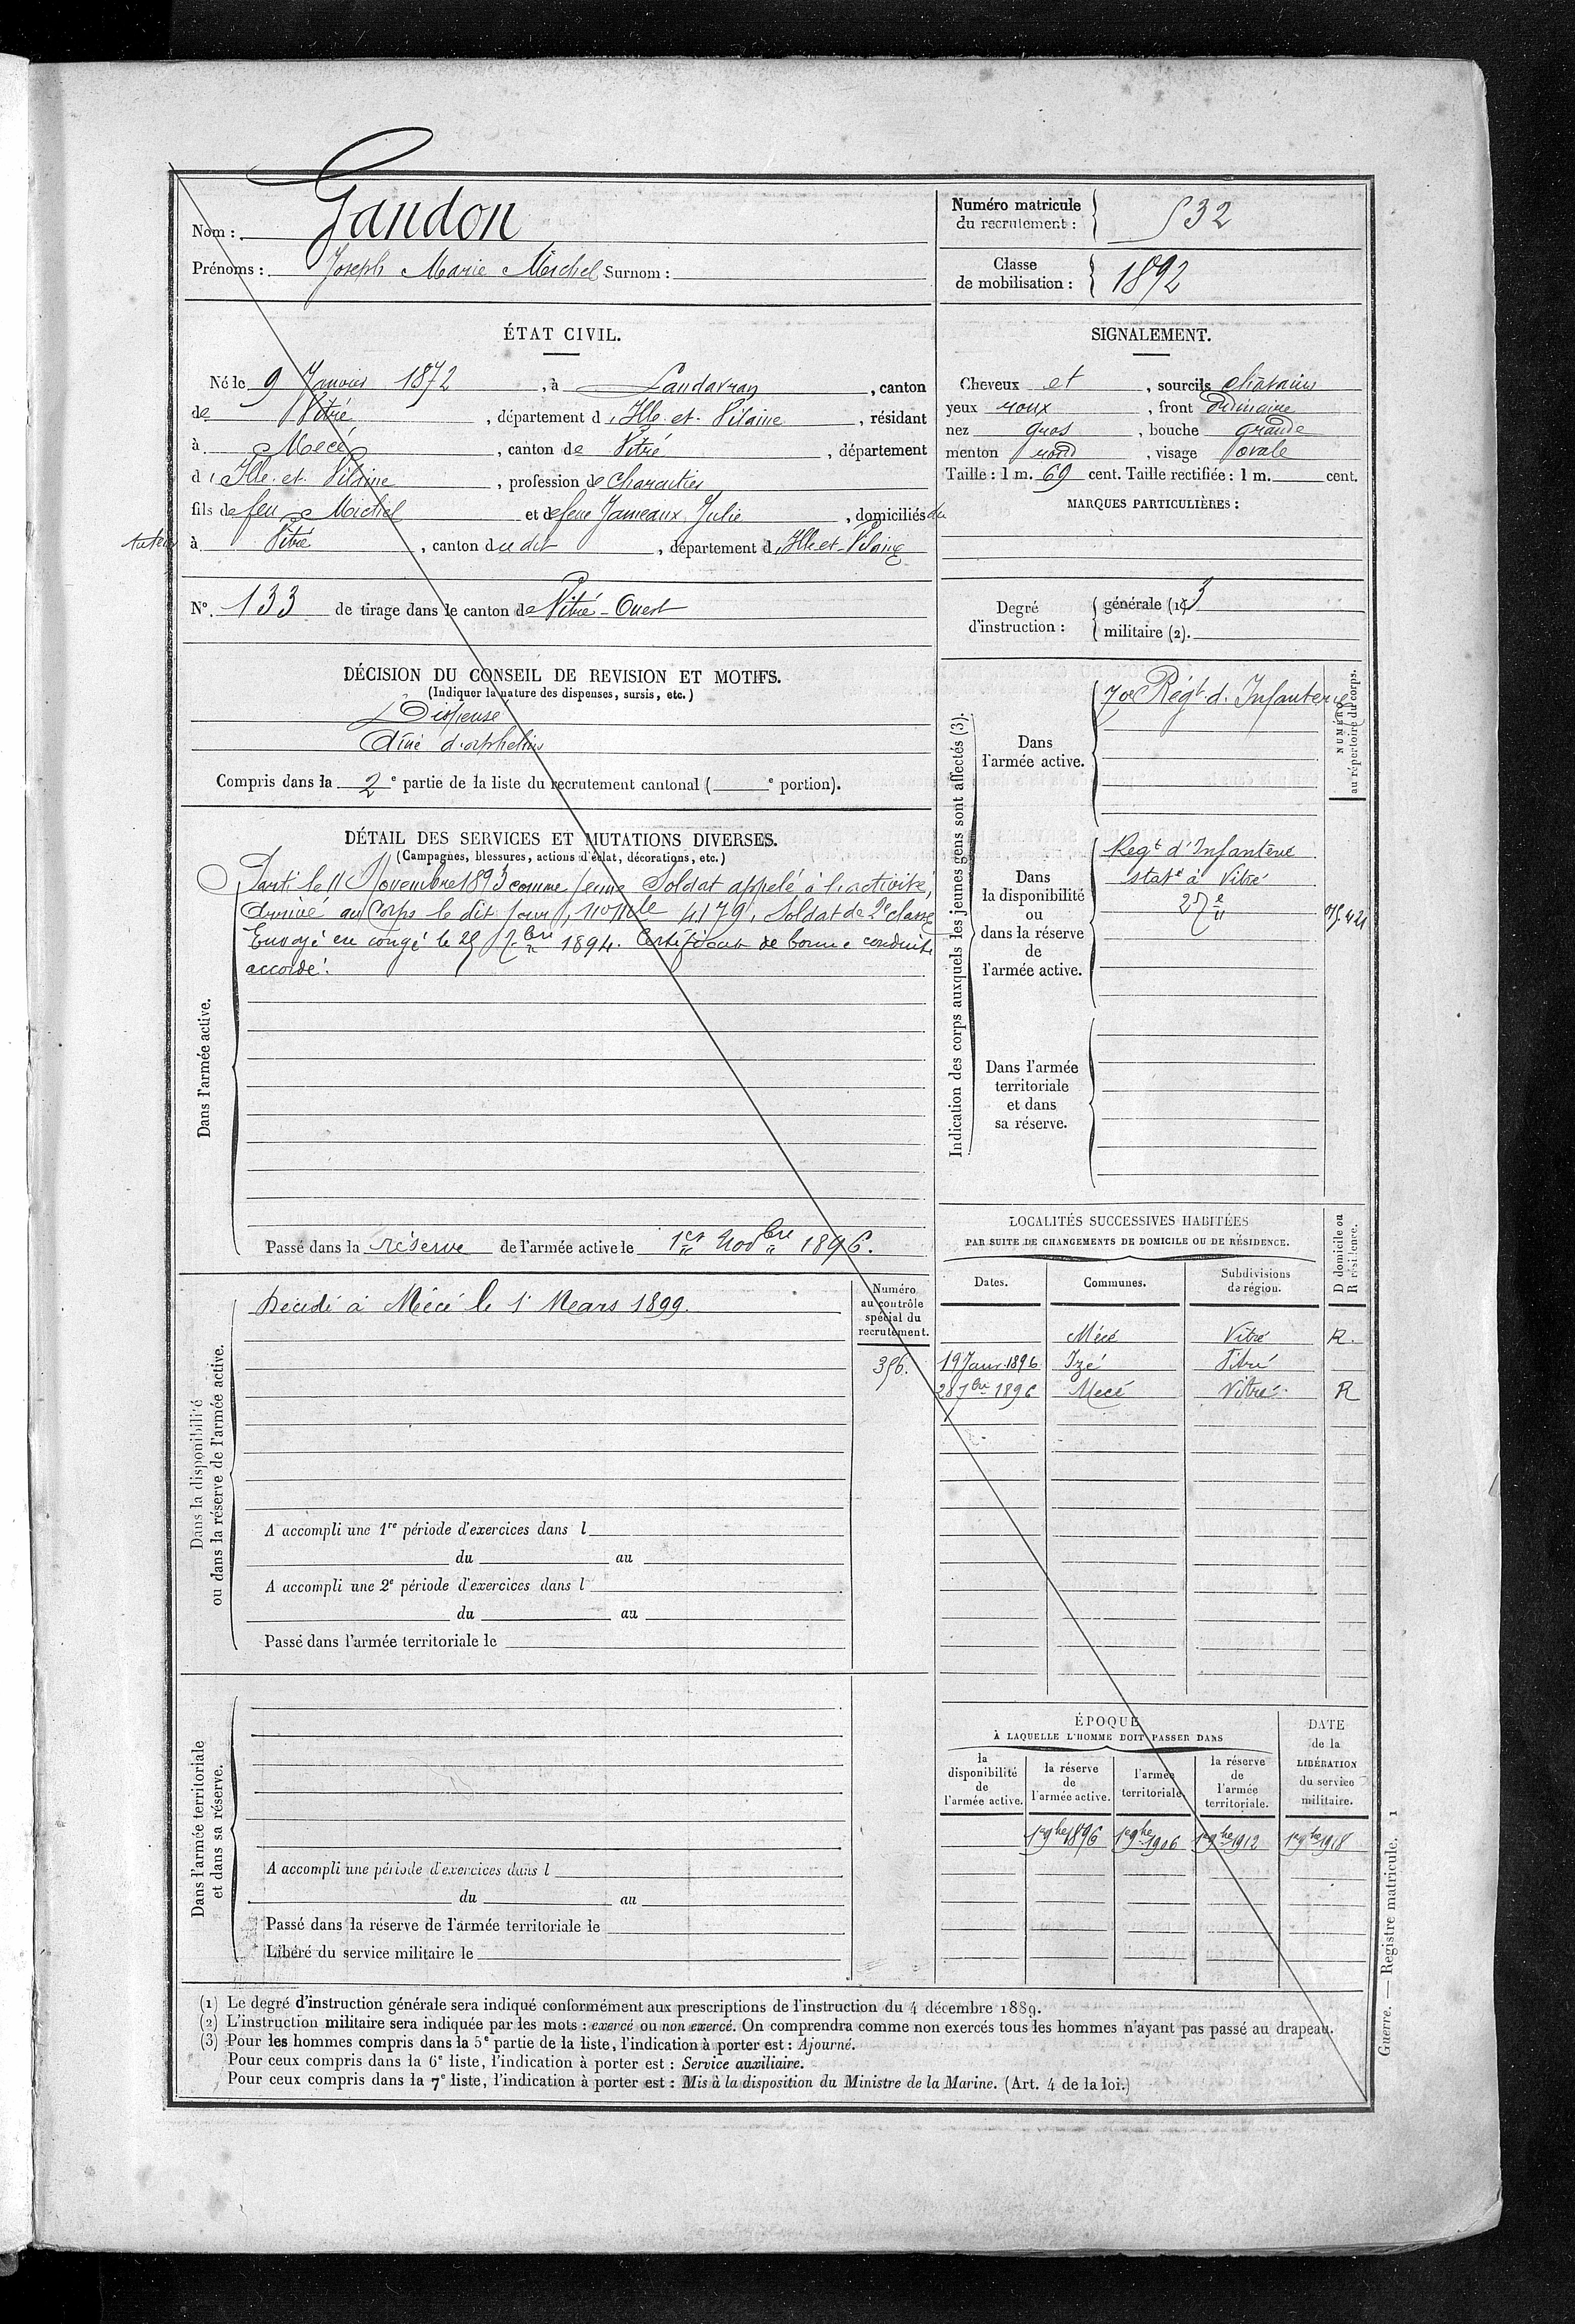 Nom : Gandon
Prénoms : Joseph Marie Michel Surnom :
Numéro matricule
du recrutement : 532
Classe
de mobilisation : 1892
ÉTAT CIVIL.
Né le 9 Janvier 1872, à Landavran, canton
de Vitré, département d'Ille-et-Vilaine, résidant
à Mecé, canton de Vitré, département
d'Ille-et-Vilaine, profession de
fils de feu Michel et de feue Jameaux Julie, domiciliés du
tuteur à Vitré, canton du dit, département d'Ille-et-Vilaine
N° 133 de tirage dans le canton de Vitré-Ouest
SIGNALEMENT.
Cheveux et, sourcils châtains
yeux roux, front ordinaire
nez gros, bouche grande
menton rond, visage ovale
Taille : 1 m. 69 cent. Taille rectifiée : 1 m. cent.
MARQUES PARTICULIÈRES :
Degré
d'instruction :
générale (1). 3
militaire (2).
DÉCISION DU CONSEIL DE REVISION ET MOTIFS.
(Indiquer la nature des dispenses, sursis, etc.)
Dispensé
Aîné d'orphelins
Compris dans la 2e partie de la liste du recrutement cantonal ( e portion).
DÉTAIL DES SERVICES ET MUTATIONS DIVERSES.
(Campagnes, blessures, actions d'éclat, décorations, etc.)
Dans l'armée active.
Parti le 11 Novembre 1893 comme jeune Soldat appelé à l'activité,
Arrivé au Corps le dit jour, No Mle 4179, Soldat de 2e classe
Envoyé en congé le 25 7bre 1894. Certificat de bonne conduite
accordé.
Passé dans la réserve de l'armée active le 1er Novbre 1896.
Indication des corps auxquels les jeunes gens sont affectés (3).
Dans
l'armée active.
70e Régt d'Infanterie
NUMÉRO
au répertoire du corps.
Dans
la disponibilité
ou
dans la réserve
de
l'armée active.
Regt d'Infanterie
statné à Vitré
Dans l'armée
territoriale
et dans
sa réserve.
Dans la disponibilité
ou dans la réserve de l'armée active.
Décédé à Mécé le 1r Mars 1899.
Numéro
au contrôle
spécial du
recrutement.
356.
A accompli une 1re période d'exercices dans l
du au
A accompli une 2e période d'exercices dans l
du au
Passé dans l'armée territoriale le
LOCALITÉS SUCCESSIVES HABITÉES
PAR SUITE DE CHANGEMENTS DE DOMICILE OU DE RÉSIDENCE.
D domicile ou
R résidence.
Dates. Communes. Subdivisions
de région.
Mécé Vitré R.
19 Janv. 1896 Izé Vitré
28 7bre 1896 Mecé Vitré R
Dans l'armée territoriale
et dans sa réserve.
A accompli une période d'exercices dans l
du au
Passé dans la réserve de l'armée territoriale le
Libéré du service militaire le
ÉPOQUE
À LAQUELLE L'HOMME DOIT PASSER DANS
la
disponibilité
de
l'armée active.
la réserve
de
l'armée active.
l'armée
territoriale.
la réserve
de
l'armée
territoriale.
DATE
de la
LIBÉRATION
du service
militaire.
1er 9bre 1896 1er 9bre 1906 1er 9bre 1912 1er 9bre 1918
(1) Le degré d'instruction générale sera indiqué conformément aux prescriptions de l'instruction du 4 décembre 1889.
(2) L'instruction militaire sera indiquée par les mots : exercé ou non exercé. On comprendra comme non exercés tous les hommes n'ayant pas passé au drapeau.
(3) Pour les hommes compris dans la 5e partie de la liste, l'indication à porter est : Ajourné.
Pour ceux compris dans la 6e liste, l'indication à porter est : Service auxiliaire.
Pour ceux compris dans la 7e liste, l'indication à porter est : Mis à la disposition du Ministre de la Marine. (Art. 4 de la loi.)
Guerre. — Registre matricule. 1